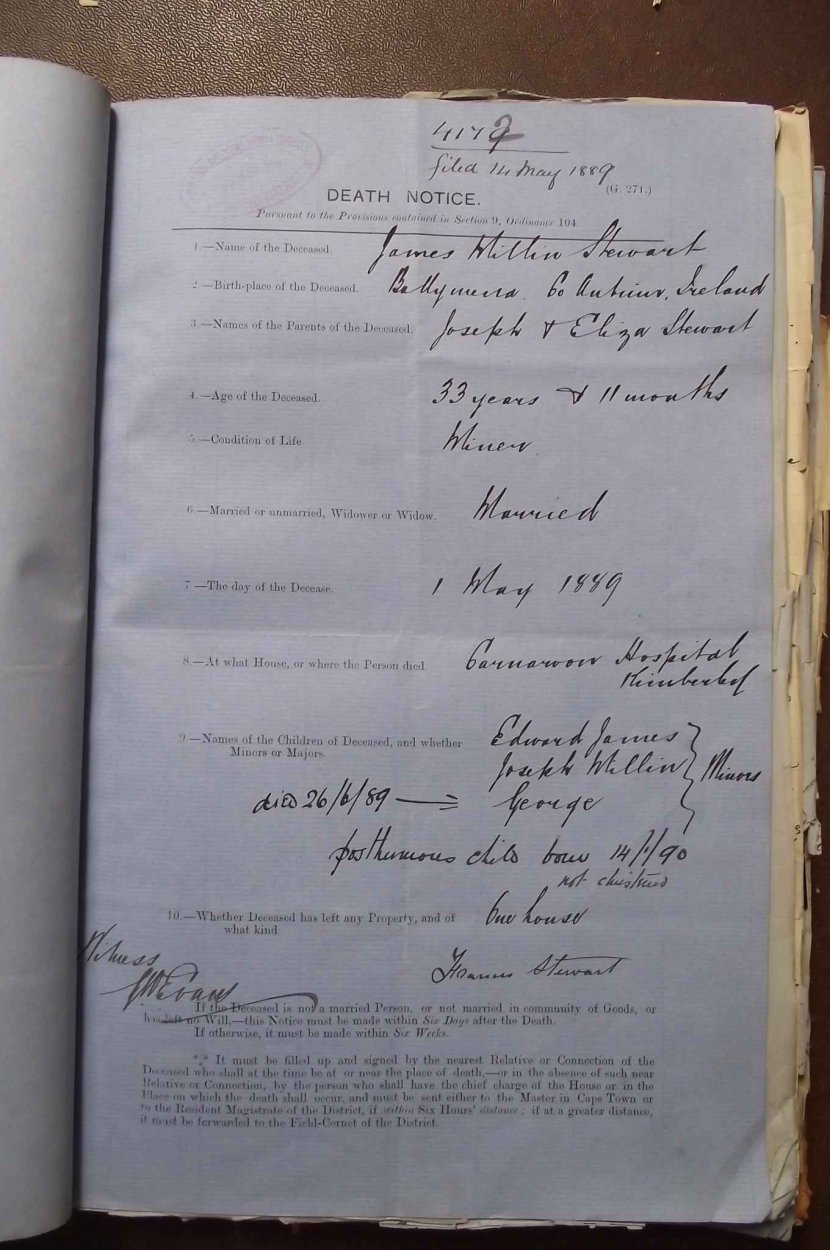 4179
filed 14 May 1889
(G. 271.)
DEATH NOTICE.
Pursuant to the Provisions contained in Section 9, Ordinance 104.
1.—Name of the Deceased. James Millin Stewart
2.—Birth-place of the Deceased. Ballymena. Co Antrim, Ireland
3.—Names of the Parents of the Deceased. Joseph & Eliza Stewart
4.—Age of the Deceased. 33 years & 11 months
5.—Condition of Life. Miner
6.—Married or unmarried, Widower or Widow. Married
7.—The day of the Decease. 1 May 1889
8.—At what House, or where the Person died. Carnarvon Hospital
Kimberley
9.—Names of the Children of Deceased, and whether Edward James
Minors or Majors. Joseph Millin Minors
died 26/6/89 — George
posthumous child born 14/1/90
not christned
10.—Whether Deceased has left any Property, and of One house
what kind
Witness
Evans
Frances Stewart
If the Deceased is not a married Person, or not married in community of Goods, or
has left no Will,—this Notice must be made within Six Days after the Death.
If otherwise, it must be made within Six Weeks.
*** It must be filled up and signed by the nearest Relative or Connection of the
Deceased who shall at the time be at or near the place of death,—or in the absence of such near
Relative or Connection, by the person who shall have the chief charge of the House or in the
Place on which the death shall occur, and must be sent either to the Master in Cape Town or
to the Resident Magistrate of the District, if within Six Hours' distance; if at a greater distance,
it must be forwarded to the Field-Cornet of the District.